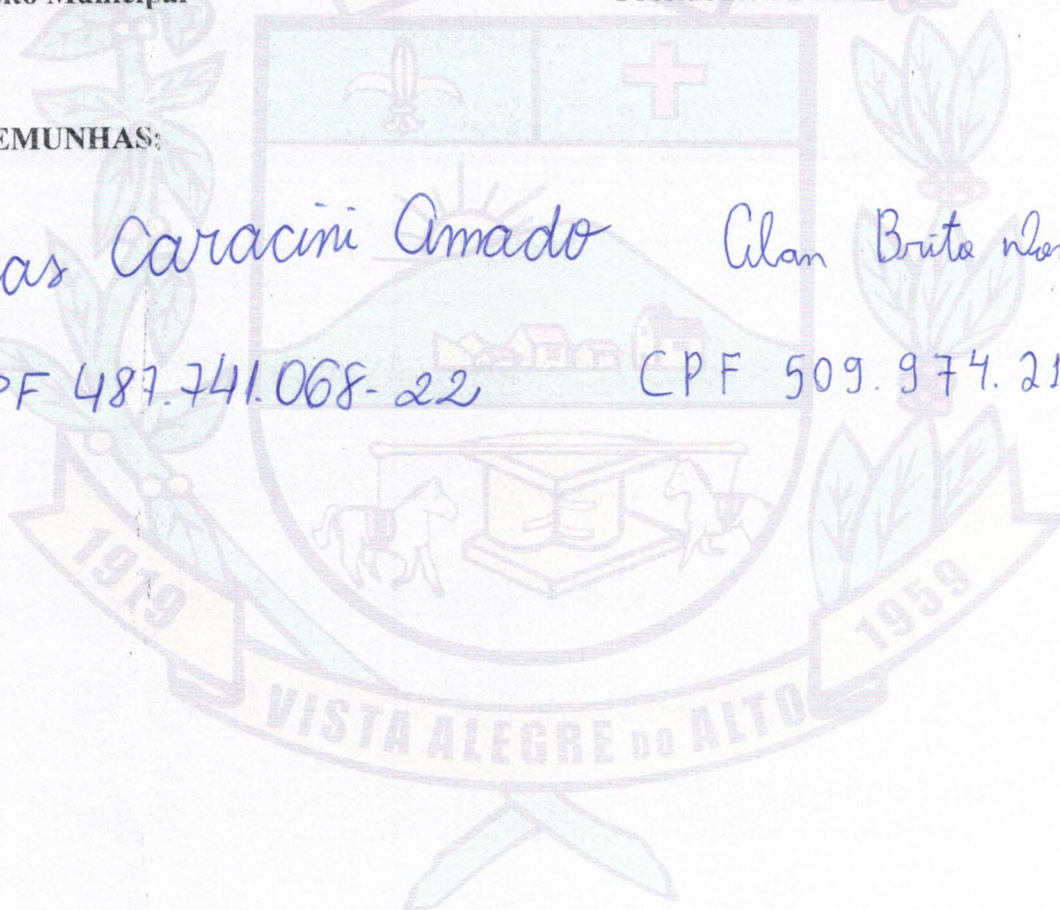 Municipal
EMUNHAS:
as Caracini Amado Alan Brito
PF 487.741.068-22 CPF 509.974.21
1919
1959
VISTA ALEGRE DO ALTO